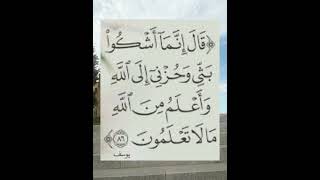 ﴿قَالَ إِنَّمَآ أَشْكُوا۟
بَثِّى وَحُزْنِىٓ إِلَى ٱللَّهِ
وَأَعْلَمُ مِنَ ٱللَّهِ
مَا لَا تَعْلَمُونَ ٨٦﴾
يوسف